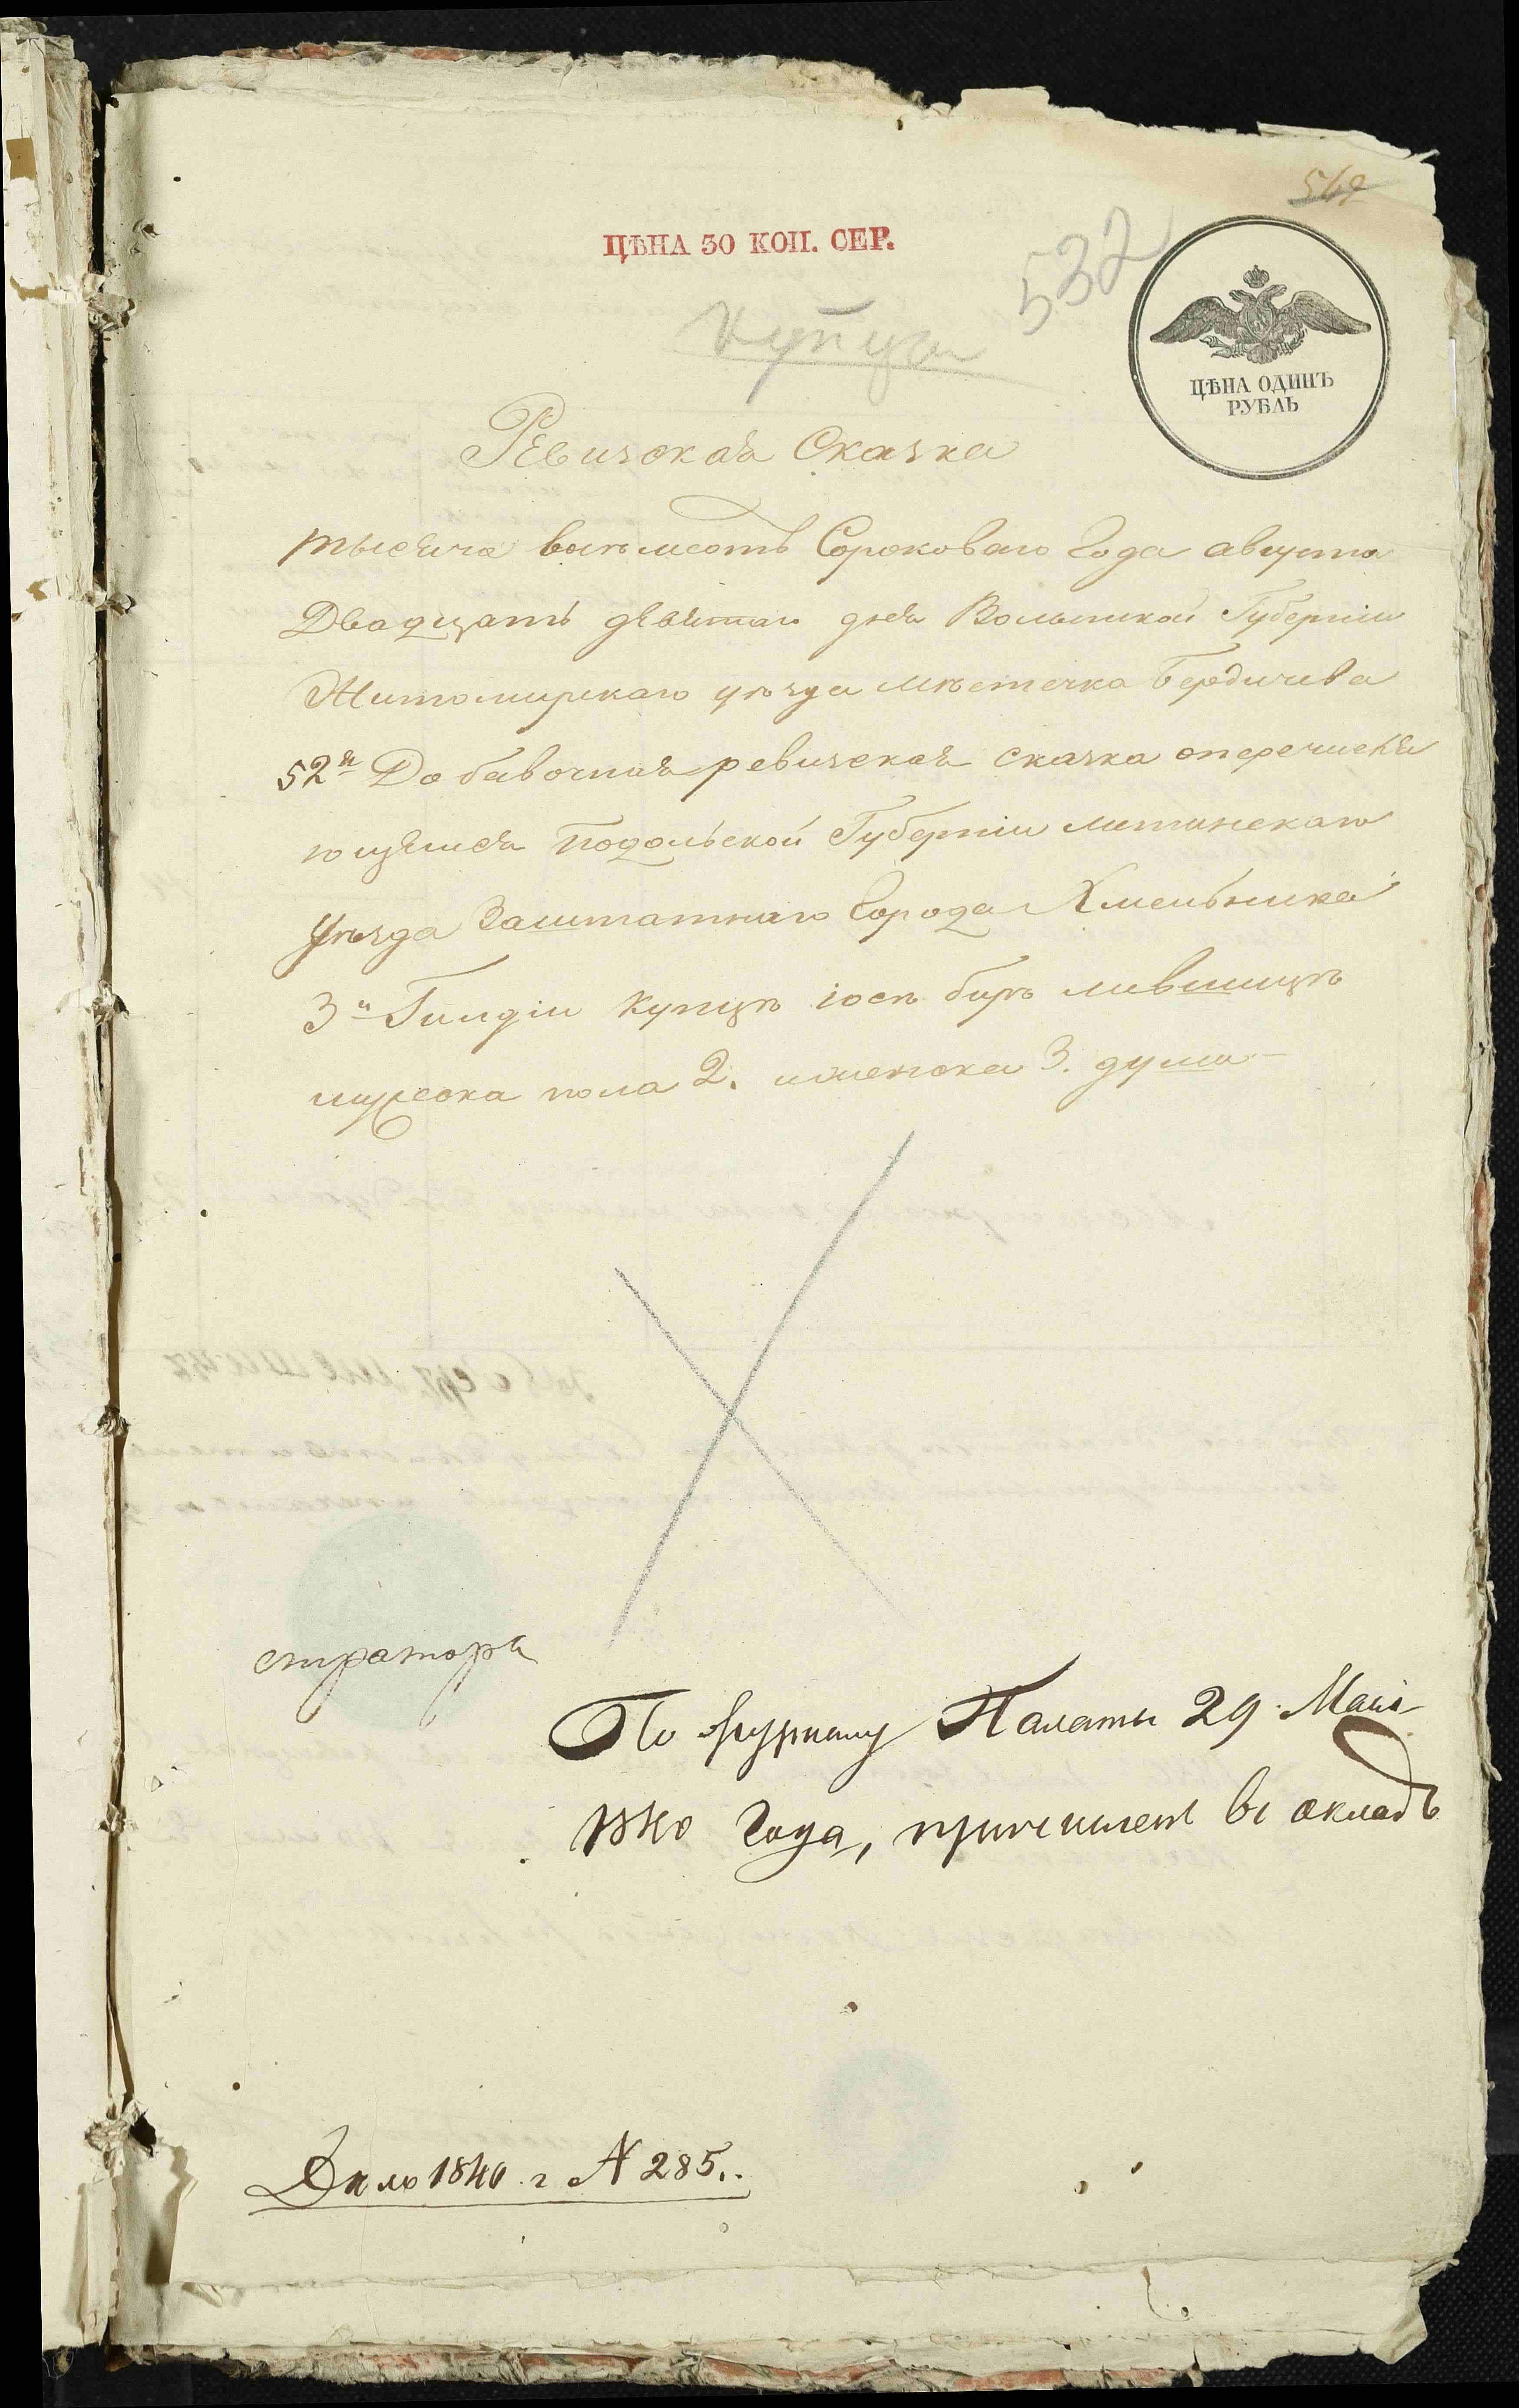 562
ЦѢНА 30 КОП. СЕР.
532
купцы
ЦѢНА ОДИНЪ
РУБЛЬ
Ревизская Сказка
тысяча восѣмсотъ Сороковаго Года августа
Двадцать девятаго дня Волынской Губерніи
Житомирскаго уѣзда мѣстечка Бердичева
52я Добавочная ревизская сказка о перечисля
ющемся Подольской Губерніи литинскаго
уѣзда Заштатнаго Города Хмельника
3й Гилдіи Купцѣ іосѣ берѣ лившицѣ
мужеска пола 2. и женска 3. души
стратора
По журналу Палаты 29 Мая
1840 Года, причисленъ въ окладъ
Дѣло 1840 г N 285.